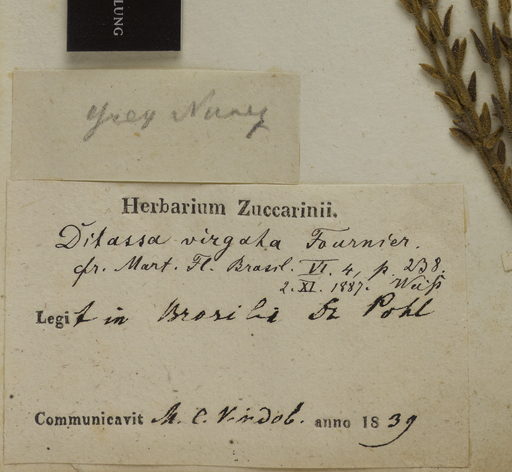 LUNG
Herbarium Zuccarinii.
Ditassa virgata Fournier.
cfr. Mart. Fl. Brasil. VI. 4, p. 238.
2. XI. 1887. Weiß
Legit in Brasilia Dr Pohl
Communicavit M. C. Vindob. anno 1839